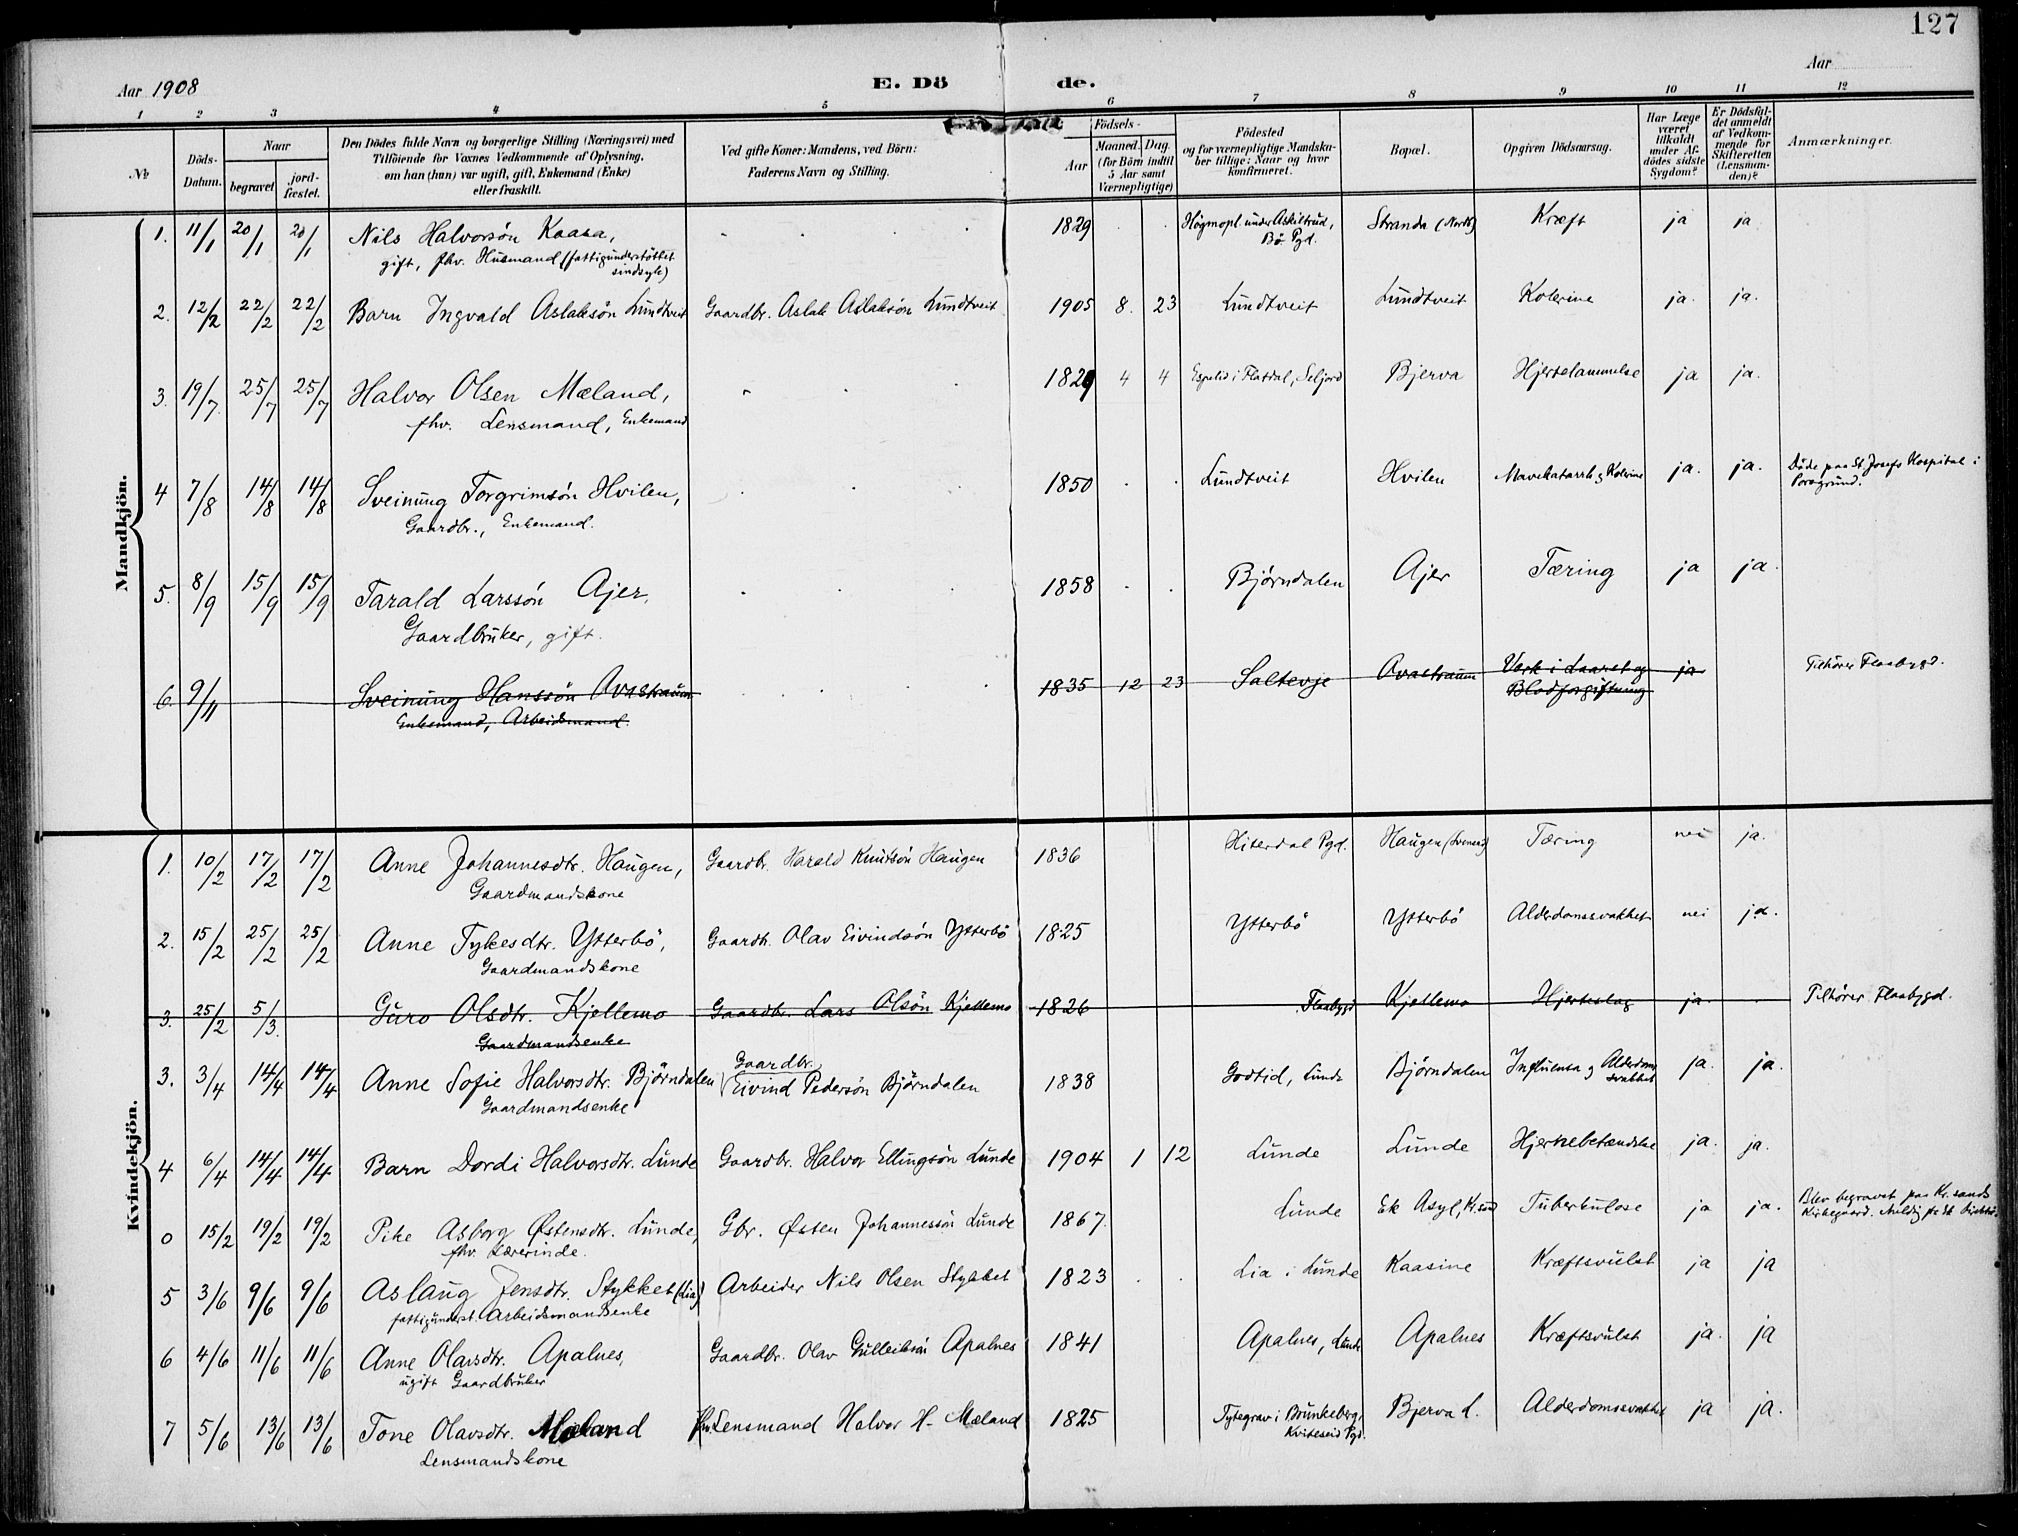 127
Aar 1908
E. Dö de.
Aar
1 2 3 4 5 6 7 8 9 10 11 12
No
Döds-Datum.
Naar
begravet
jordfæstet.
Den Dödes fulde Navn og borgerlige Stilling (Næringsvei) med
Tilföiende for Voxnes Vedkommende af Oplysning,
om han (hun) var ugift, gift, Enkemand (Enke)
eller fraskilt.
Ved gifte Koner: Mandens, ved Börn:
Faderens Navn og Stilling.
Födsels-
Aar
Maaned. Dag.
(for Börn indtil
5 Aar samt
Værnepligtige)
Födested
og for værnepligtige Mandskaber
tillige: Naar og hvor
konfirmeret.
Bopæl.
Opgiven Dödsaarsag.
Har Læge
været
tilkaldt
under Afdödes
sidste
Sygdom?
Er Dödsfaldet
anmeldt
af Vedkommende
for
Skifteretten
(Lensmanden)?
Anmærkninger.
Mandkjön.
1. 11/1 20/1 20/1 Nils Halvorsön Kaasa, 1829 Högmopl. under Askiltrud, Stranda (Nordb) Kræft ja ja
gift, fhv. Husmand (fattigunderstöttet Bö Pgd.
sindsyk)
2. 12/2 22/2 22/2 Barn Ingvald Aslaksön Lundtveit Gaardbr. Aslak Aslaksön Lundtveit 1905 8. 23 Lundtveit Lundtveit Kolerine ja. ja.
3. 19/7. 25/7 25/7 Halvor Olsen Mæland, 1829 4 4 Espelid i Flatdal, Seljord Bjerva Hjertelammelse ja ja.
fhv. Lensmand, Enkemand
4 7/8 14/8 14/8 Sveinung Torgrimsön Hvilen, 1850 Lundtveit Hvilen Mavekatarrh og Kolerine ja. ja. Döde paa St. Josefs Hospital i
Gaardbr., Enkemand. Porsgrund.
5. 8/9 15/9 15/9 Tarald Larssön Ajer, 1858 Bjørndalen Ajer Tæring ja ja.
Gaardbruker, gift.
6. 9/11 Sveinung Hanssön Ovastraum 1835 12 23 Saltevje Ovastraum Verk i Laaret og ja Tilhører Flaabygd.
Enkemand, Arbeidsmand. Blodforgiftning
Kvindekjön.
1. 10/2 17/2 17/2 Anne Johannesdtr. Haugen, Gaardbr. Harald Knutsön Haugen 1836 Hiterdal Pgd. Haugen Tæring nei ja.
Gaardmandskone
2. 15/2 25/2 25/2 Anne Tykesdtr. Ytterbö, Gaardbr. Olav Eivindsön Ytterbö 1825 Ytterbö Ytterbö Alderdomssvakhet nei ja.
Gaardmandskone
3. 25/2 5/3. Guro Olsdtr. Kjellemo Gaardbr. Lars Olsön Kjellemo 1826 Flaabygd Kjellemo Hjerteslag ja Tilhører Flaabygd.
Gaardmandsenke
3. 3/4 14/4 14/4 Anne Sofie Halvorsdtr. Björndalen Gaardbr. Eivind Pedersön Björndalen 1838 Godtid, Lunde Björndalen Influensa og Alderdomssvakhet ja. ja.
Gaardmandsenke
4 6/4 14/4 14/4 Barn Dordi Halvorsdtr. Lunde Gaardbr. Halvor Ellingsön Lunde 1904 1 12 Lunde Lunde Hjernebetændelse ja. ja.
0 15/2 19/2 19/2 Pike Asborg Østensdtr. Lunde, Gbr. Østen Johannessön Lunde 1867. Lunde Ek Asyl, Kr.sand Tuberkulose ja ja. Blev begravet paa Kr.sands
fhv. Lærerinde. Kirkegaard.
5 3/6 9/6 9/6 Aslaug Jensdtr. Stykket (Lia) Arbeider Nils Olsen Stykket 1823 Lia i Lunde Kaasine Kræftsvulst ja ja
fattigunderst. Arbeidsmandsenke
6 4/6 11/6 11/6 Anne Olavsdtr. Apalnes, Gaardbr. Olav Gulleiksön Apalnes 1841 Apalnes, Lunde Apalnes Kræftsvulst ja. ja
ugift Gaardbruker
7 5/6 13/6 13/6 Tone Olavsdtr. Mæland fhv. Lensmand Halvor H. Mæland 1825 Tytegrav i Brunkeberg, Bjerva d. Alderdomssvakhet ja ja.
Lensmandskone Kviteseid Pgd.